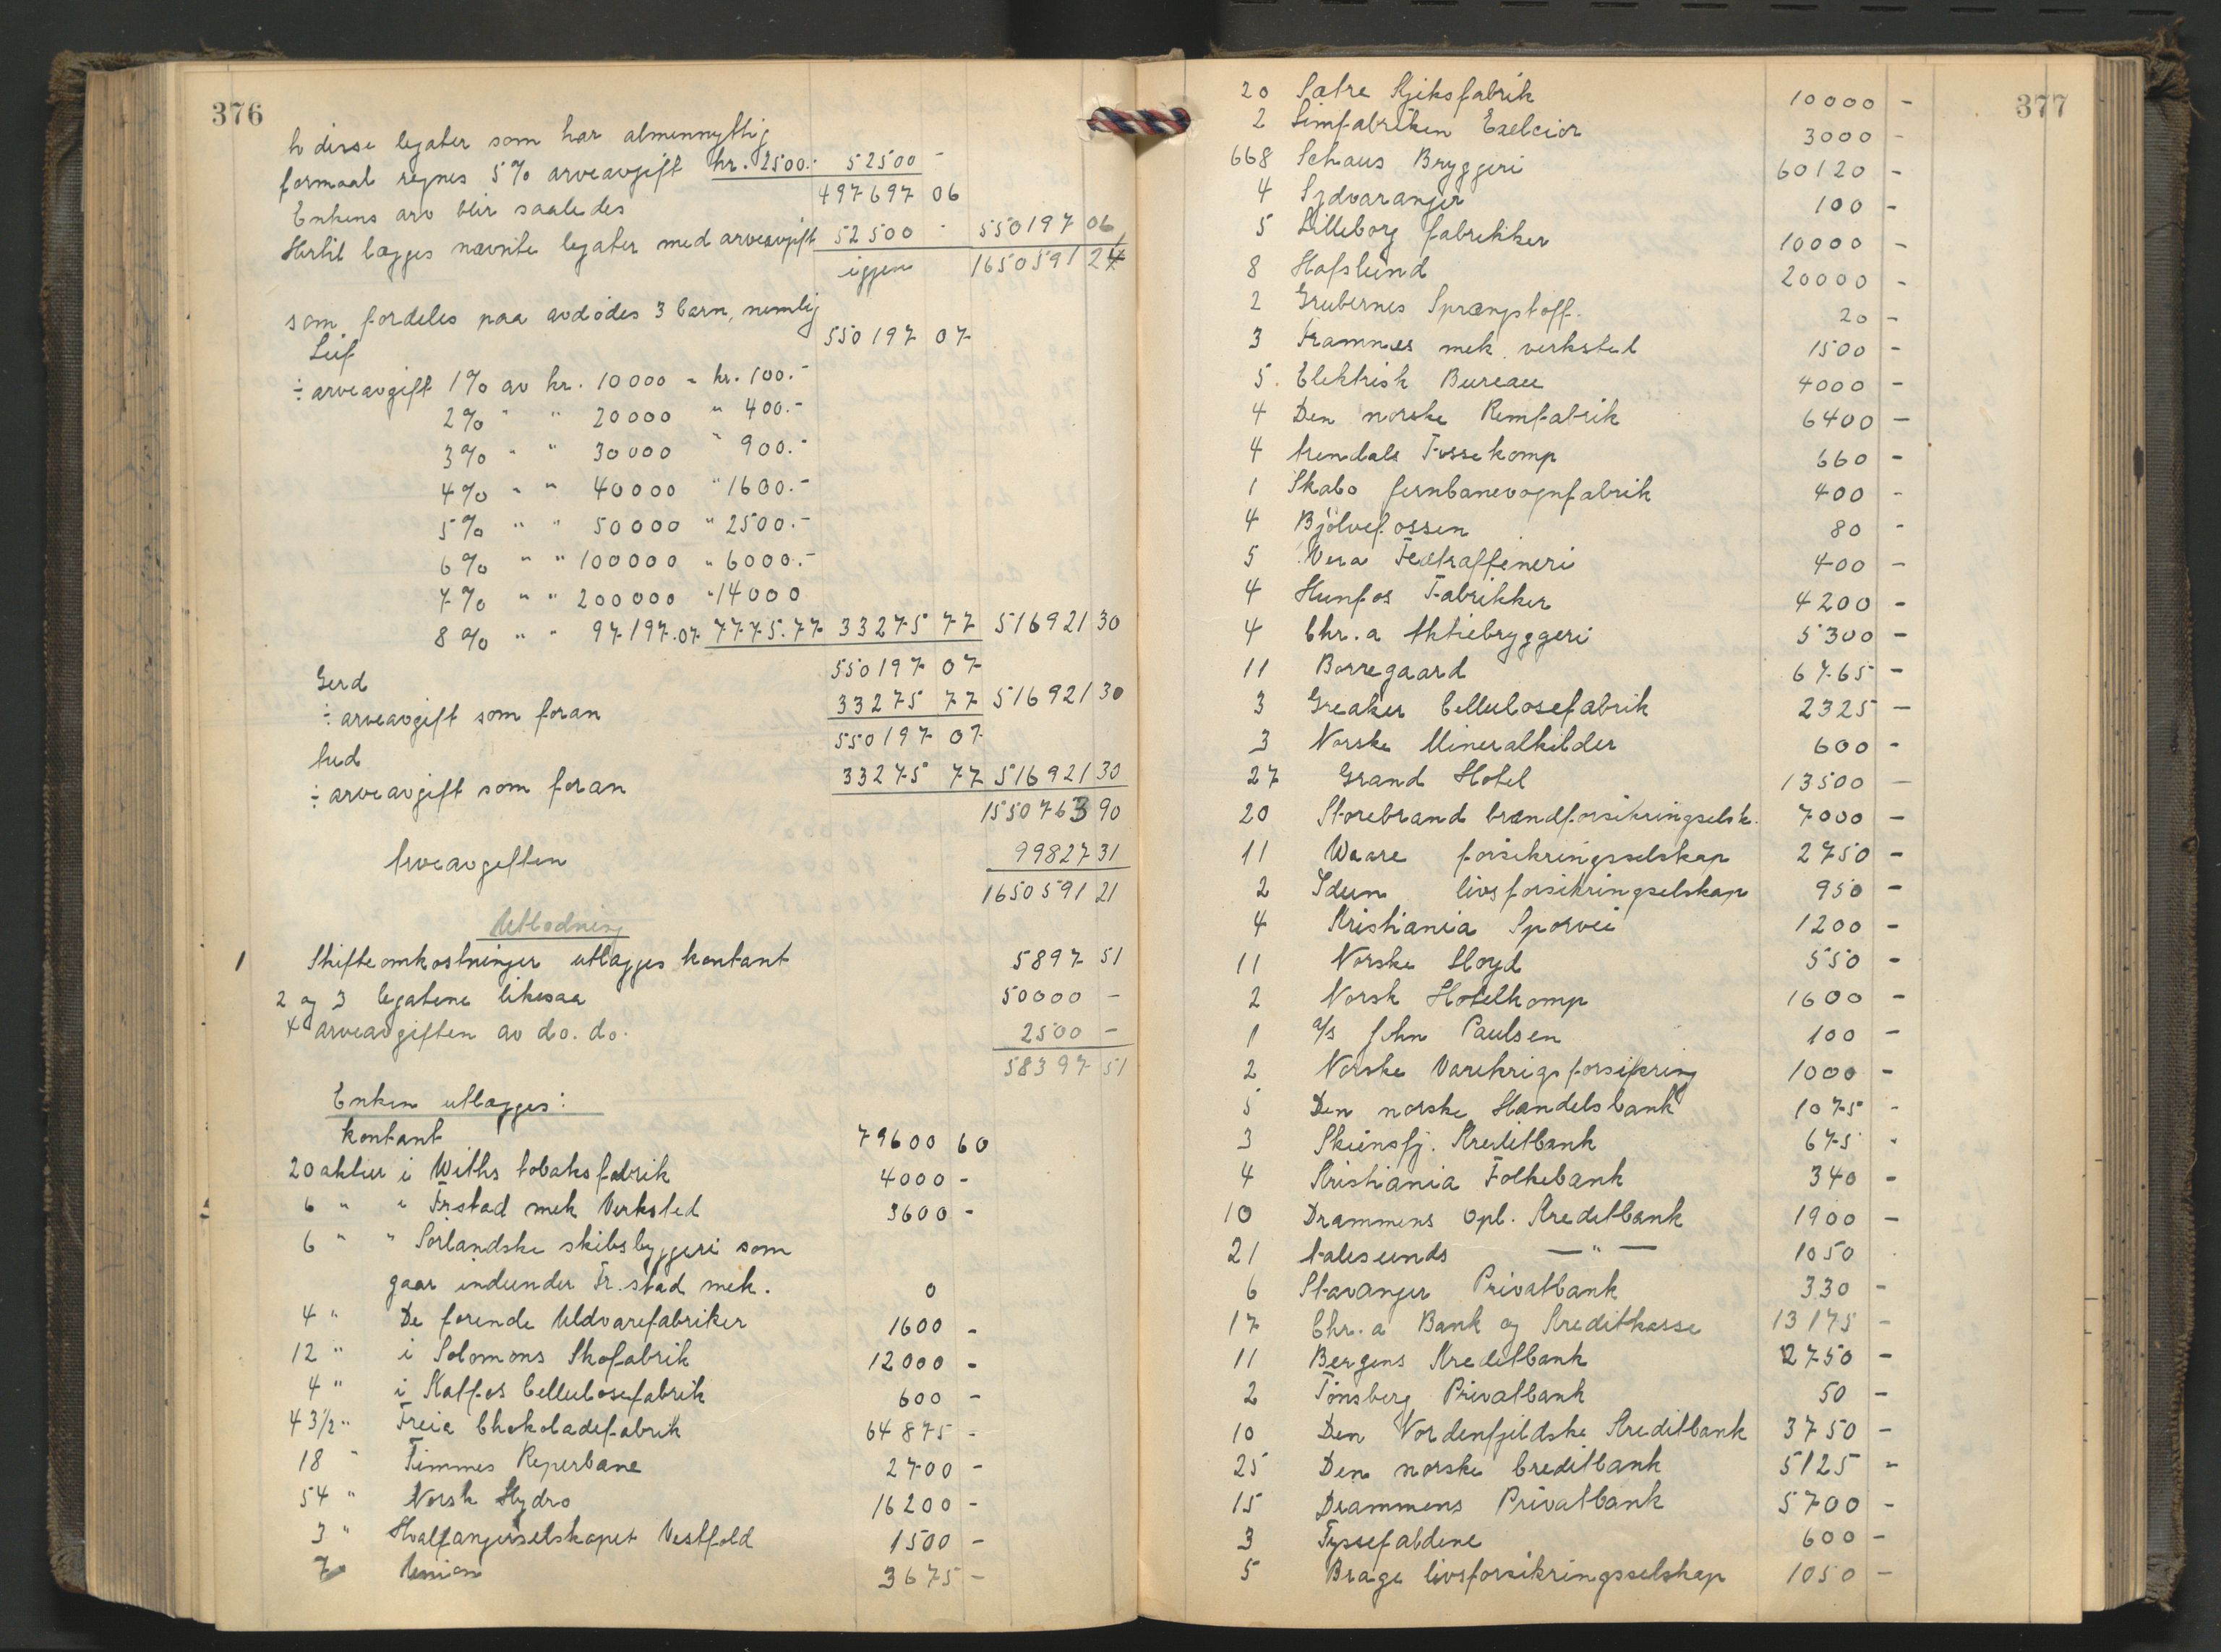 376
to disse legater som har almennyttig
formaal regnes 5% arveavgift kr. 2500.- 52500 -
497697 06
Enkens arv blir saaledes
Hertil lægges nævnte legater med arveavgift 52500 - 550197 06
igjen 1650591 24
som fordeles paa avdødes 3 barn, nemlig
Leif 550197 07
÷ arveavgift 1% av kr. 10000 = kr. 100.-
2% " " 20000 " 400.-
3% " " 30000 " 900.-
4% " " 40000 " 1600.-
5% " " 50000 " 2500.-
6% " " 100000 " 6000.-
7% " " 200000 " 14000
8% " " 97197.07 7775.77 33275 77 516921 30
Gerd 550197 07
÷ arveavgift som foran 33275 77 516921 30
Aud 550197 07
÷ arveavgift som foran 33275 77 516921 30
1550763 90
Arveavgiften 99827 31
1650591 21
Utlodning
1 Skifteomkostninger utlægges kontant 5897 51
2 og 3 legatene likesaa 50000 -
4 arveavgiften av do. do. 2500 -
58397 51
Enken utlægges:
kontant 79600 60
20 aktier i Withs tobaksfabrik 4000 -
6 " i Frstad mek Verksted 3600 -
6 " " Sørlandske skibsbyggeri som
gaar indunder Fr.stad mek. 0
4 " De forende Uldvarefabriker 1600 -
12 " i Solomons Skofabrik 12000 -
4 " i Kaffos Cellulosefabrik 600 -
43½ " Freia Chokoladefabrik 64875 -
18 " Timmes Reperbane 2700 -
54 " Norsk Hydro 16200 -
3 " Hvalfangerselskapet Vestfold 1500 -
7 Union 3675 -
377
20 Sætre Kjeksfabrik 10000 -
2 Limfabriken Exelcior 3000 -
668 Schous Bryggeri 60120 -
4 Sydvaranger 100 -
5 Lilleborg fabrikker 10000 -
8 Hafslund 20000 -
2 Grubernes Sprængstoff. 20 -
3 Framnæs mek. verksted 1500 -
5. Elektrisk Bureau 4000 -
4 Den norske Remfabrik 6400 -
4 Arendals Fossekomp 660 -
1 Skabo Jernbanevognfabrik 400 -
4 Bjölvefossen 80 -
5 Vera Fedtraffeneri 400 -
4 Hunfos Fabrikker 4200 -
4 Chr.a Aktiebryggeri 5300 -
11 Borregaard 6765 -
3 Greaker Cellulosefabrik 2325 -
3 Norske Mineralkilder 600 -
27 Grand Hotel 13500 -
20 Storebrand brandforsikringselsk. 7000 -
11 Waare forsikringsselskap 2750 -
2 Idun livsforsikringselskap 950 -
4 Kristiania Sporvei 1200 -
11 Norske Lloyd 550 -
2 Norsk Hotelkomp 1600 -
1 a/s John Paulsen 100 -
2 Norske Varekrigsforsikring 1000 -
5 Den norske Handelsbank 1075 -
3 Skiensfj. Kreditbank 675 -
4 Kristiania Folkebank 340 -
10 Drammens Opl. Kreditbank 1900 -
21 Aalesunds — " — 1050 -
6 Stavanger Privatbank 330 -
17 Chr.a Bank og Kreditkasse 13175 -
11 Bergens Kreditbank 2750 -
2 Tönsberg Privatbank 50 -
10 Den Nordenfjeldske Kreditbank 3750 -
25 Den norske Creditbank 5125 -
15 Drammens Privatbank 5700 -
3 Tyssefaldene 600 -
5 Brage livsforsikringsselskap 1050 -